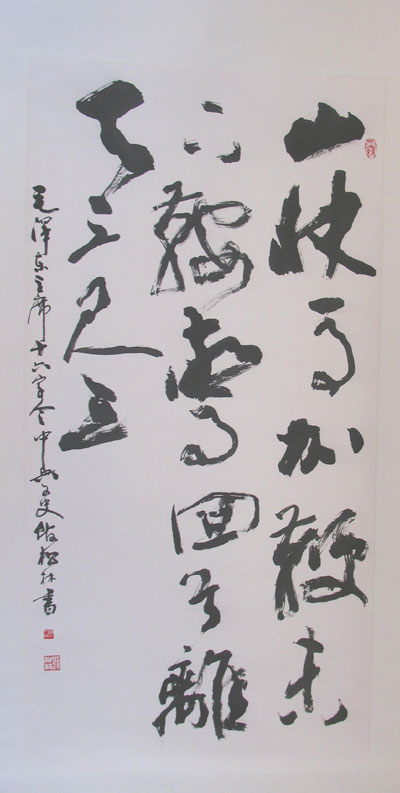 山快马加鞭未
下鞍驚回首離
天三尺三
毛泽东主席十六字令中央文史馆林書